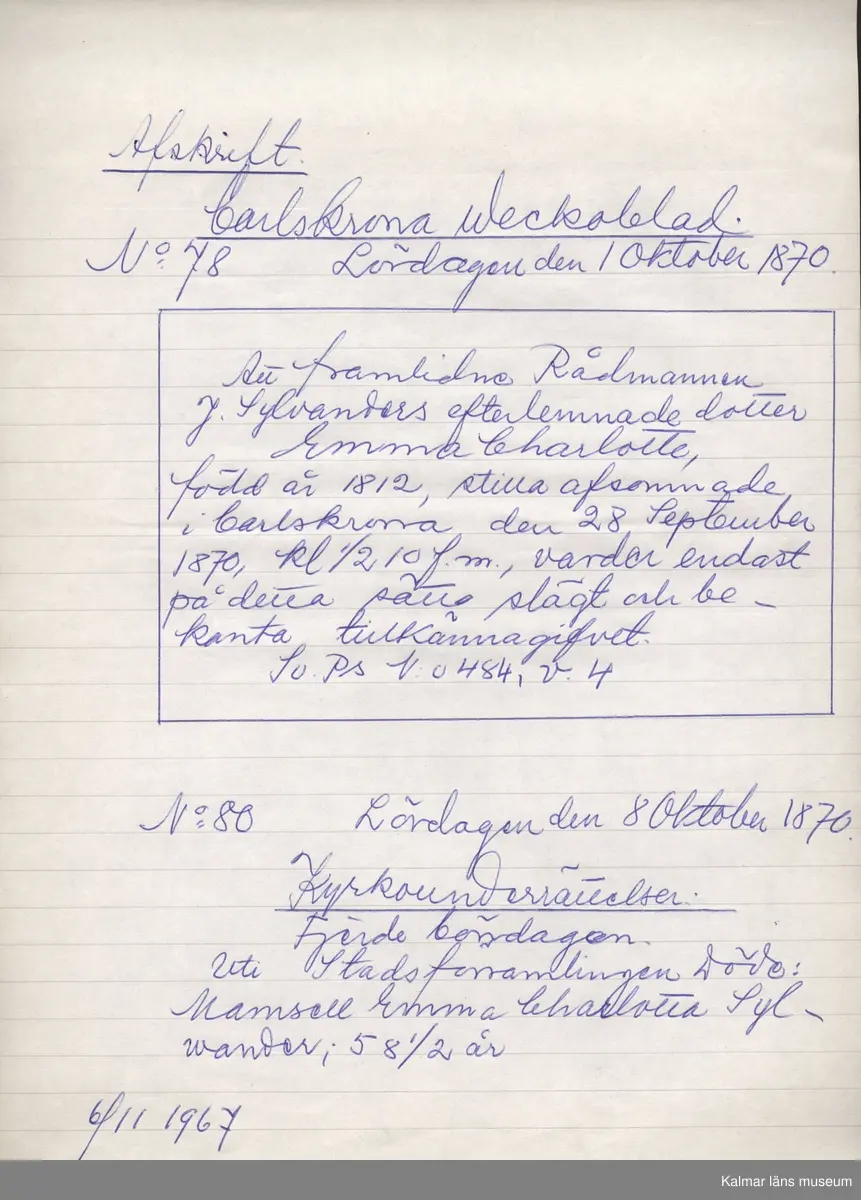 Afskrift.
Carlskrona Weckoblad.
No: 78 Lördagen den 1 Oktober 1870.
Att framlidne Rådmannen
J. Sylvanders efterlemnade dotter
Emma Charlotte,
född år 1812, stilla afsomnade
i Carlskrona den 28 September
1870, kl 1/2 10 f.m., varder endast
på detta sätt slägt och be-
kanta tillkännagifvet.
Sv. Ps N:o 484, v. 4
No: 80 Lördagen den 8 Oktober 1870.
Kyrkounderrättelser.
Fjerde böndagen.
Uti Stadsförsamlingen Döde:
Mamsell Emma Charlotta Syl-
wander; 58 1/2 år
6/11 1967
Kalmar läns museum